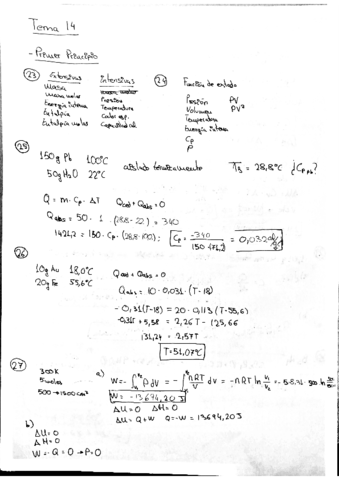 Tema 14
- Primer Principio
(23) Extensivas
Masa
masa molar
Energía interna
Entalpía
Entalpía molar
Intensivas
Presión
Temperatura
Calor esp.
(24) Función de estado
Presión PV
Volumen PV²
Temperatura
Energía interna
Cp
P
(25)
150g Pb 100°C
50g H₂O 22°C
aislado térmicamente
Tf = 28,8°C ¿Cp Pb?
Q = m · Cp · ΔT Qced + Qabs = 0
Qabs = 50 · 1 · (28,8 - 22) = 340
Cp = -340 / 150 · 471,2 = 0,032
(26)
10g Au 18,0°C
20g Fe 55,6°C
Qced + Qabs = 0
Qabs = 10 · 0,031 · (T-18)
- 0,31(T-18) = 20 · 0,113 (T-55,6)
-0,31T + 5,58 = 2,26T - 125,66
131,24 = 2,57T
T = 51,07°C
(27)
300K
5 moles
500 → 1500 cm³
a) W = -∫ P dV = -∫ nRT/V dV = -nRT ln V₂/V₁
W = -13674,20J
ΔU = 0 ΔH = 0
ΔU = Q + W Q = -W = 13674,20J
b)
ΔU = 0
ΔH = 0
W = -Q = 0 → P = 0